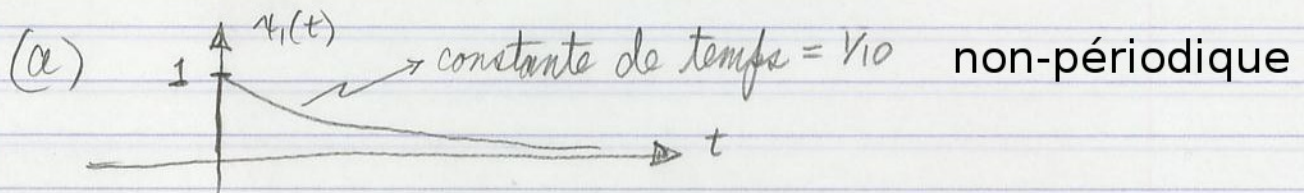 (a) x₁(t)
1 constante de temps = 1/10 non-périodique
t